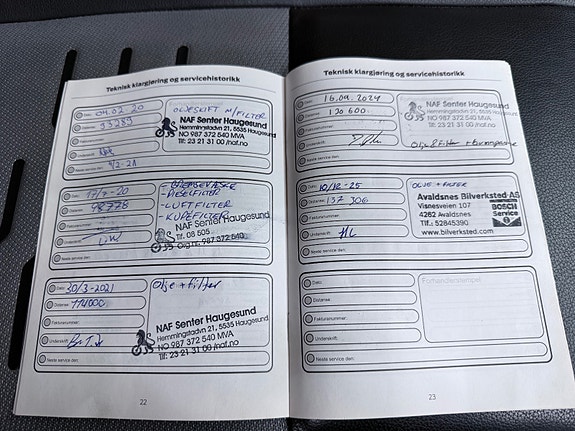 Teknisk klargjøring og servicehistorikk
Dato: 04.02.20
Distanse: 53289
Fakturanummer:
Underskrift:
Neste service den: 4/2-21
OLJESKIFT m/FILTER
NAF Senter Haugesund
Hemmingstadvn 21, 5535 Haugesund
NO 987 372 540 MVA
Tlf: 23 21 31 00 /naf.no
Dato: 17/7-20
Distanse:
Fakturanummer:
Underskrift:
Neste service den:
- BREMSEVÆSKE
- DIESELFILTER
- LUFTFILTER
- KUPEFILTER
NAF Senter Haugesund
Tlf. 08 505
Org.nr. 987 372 540
Dato: 30/3-2021
Distanse: 114000
Fakturanummer:
Underskrift:
Neste service den:
Olje + filter
NAF Senter Haugesund
Hemmingstadvn 21, 5535 Haugesund
NO 987 372 540 MVA
Tlf: 23 21 31 00 /naf.no
22
Teknisk klargjøring og servicehistorikk
Dato: 16.09.2024
Distanse: 130 600
Fakturanummer:
Underskrift:
Neste service den:
NAF Senter Haugesund
Hemmingstadvn 21, 5535 Haugesund
NO 987 372 540 MVA
Tlf: 23 21 31 00 /naf.no
Olje & filter +
Dato: 10/12-25
Distanse: 137 306
Fakturanummer:
Underskrift:
Neste service den:
OLJE + FILTER
Avaldsnes Bilverksted AS
Visnesveien 107
4262 Avaldsnes
Tlf.: 52845390
www.bilverksted.com
BOSCH
Service
Dato:
Distanse:
Fakturanummer:
Underskrift:
Neste service den:
Forhandlerstempel
23